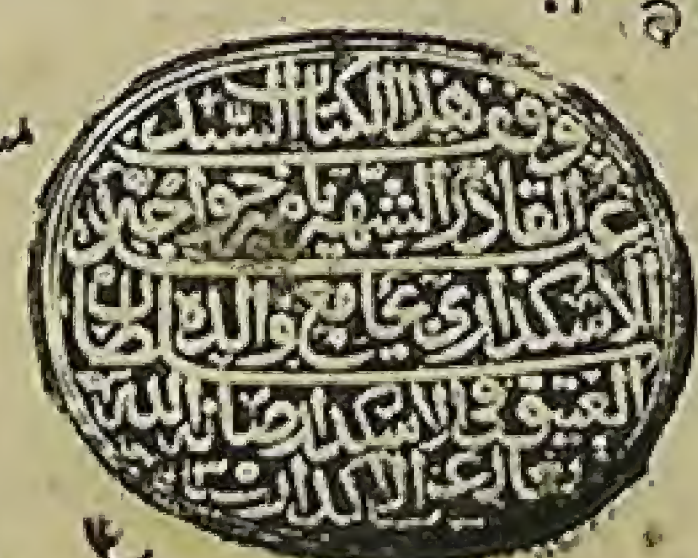 وقف هذا الكتاب السيد
عبد القادر الشهير به خواجه
الاسكداري بجامع والده سلطان
العتيق في الاسكدار صانه الله
تعالى عن الاكدار سنة